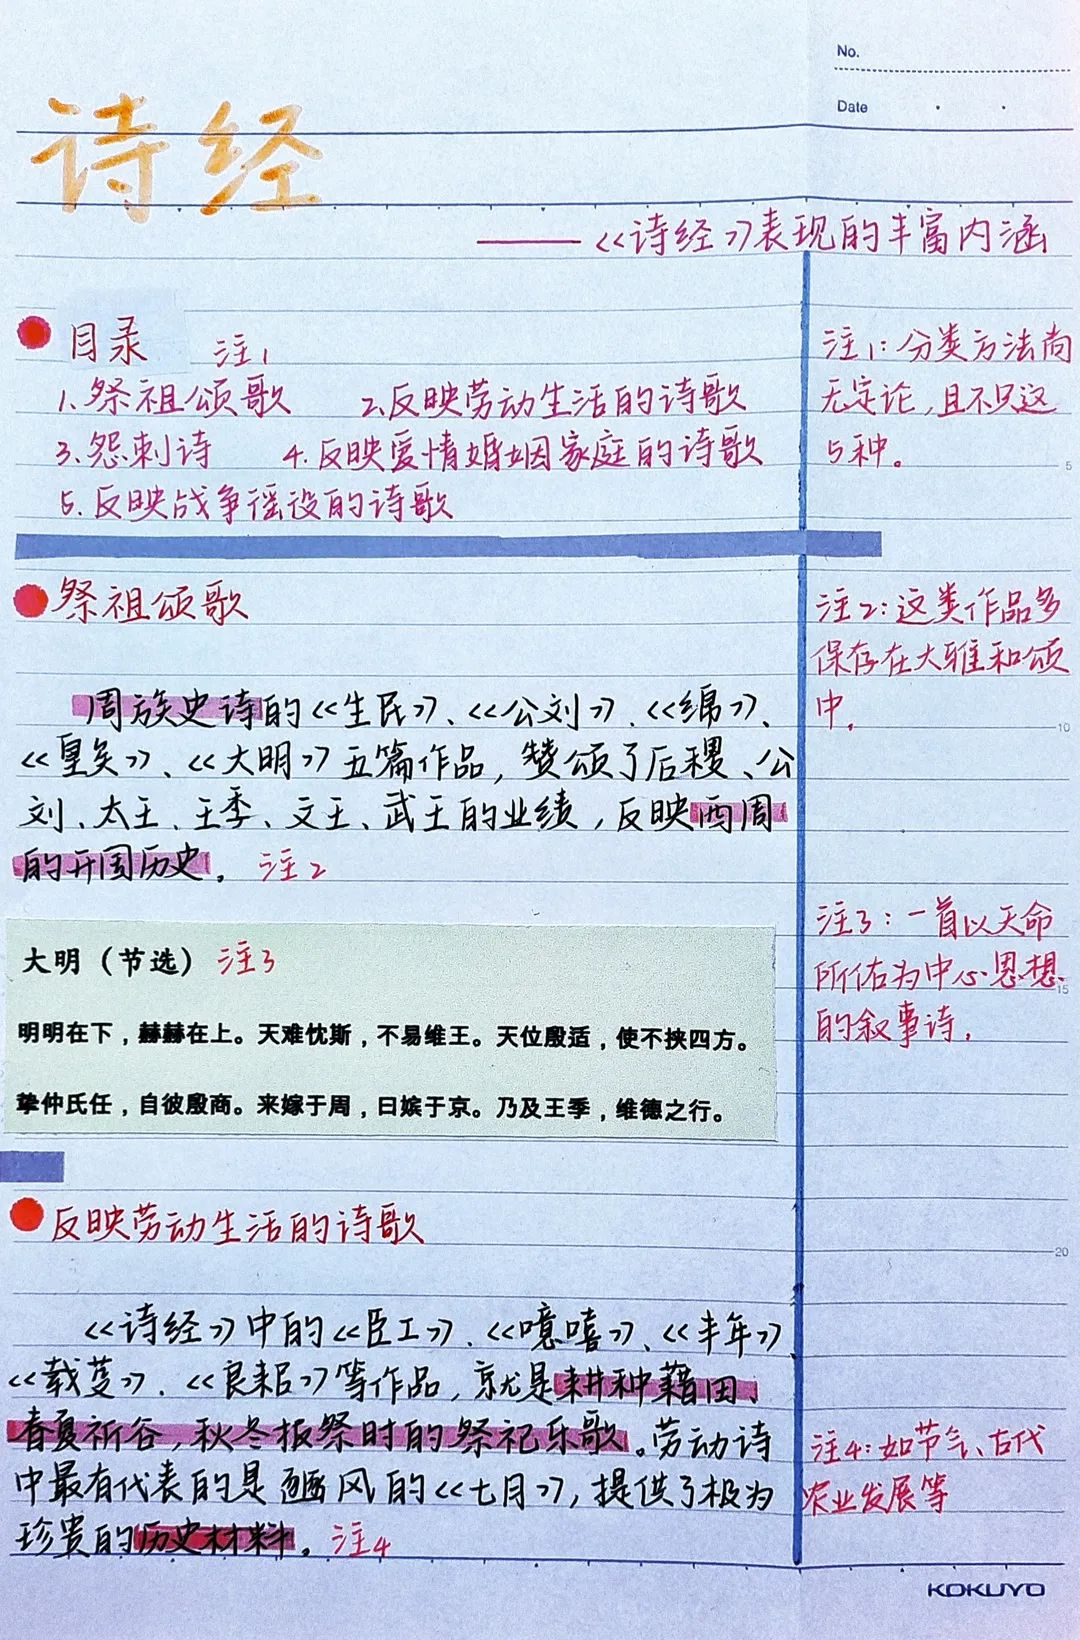 No.
Date
诗经
——《诗经》表现的丰富内涵
目录 注1
1.祭祖颂歌 2.反映劳动生活的诗歌
3.怨刺诗 4.反映爱情婚姻家庭的诗歌
5.反映战争徭役的诗歌
注1:分类方法尚
无定论,且不只这
5种。
5
祭祖颂歌
周族史诗的《生民》、《公刘》、《绵》、
《皇矣》、《大明》五篇作品,赞颂了后稷、公
刘、太王、王季、文王、武王的业绩,反映西周
的开国历史。 注2
注2:这类作品多
保存在大雅和颂
中。
10
大明(节选) 注3
明明在下,赫赫在上。天难忱斯,不易维王。天位殷适,使不挟四方。
挚仲氏任,自彼殷商。来嫁于周,曰嫔于京。乃及王季,维德之行。
注3:一首以天命
所佑为中心思想
的叙事诗。
15
反映劳动生活的诗歌
《诗经》中的《臣工》、《噫嘻》、《丰年》、
《载芟》、《良耜》等作品,就是耕种藉田、
春夏祈谷,秋冬报祭时的祭祀乐歌。劳动诗
中最有代表的是豳风的《七月》,提供了极为
珍贵的历史材料。 注4
20
注4:如节气、古代
农业发展等
KOKUYO